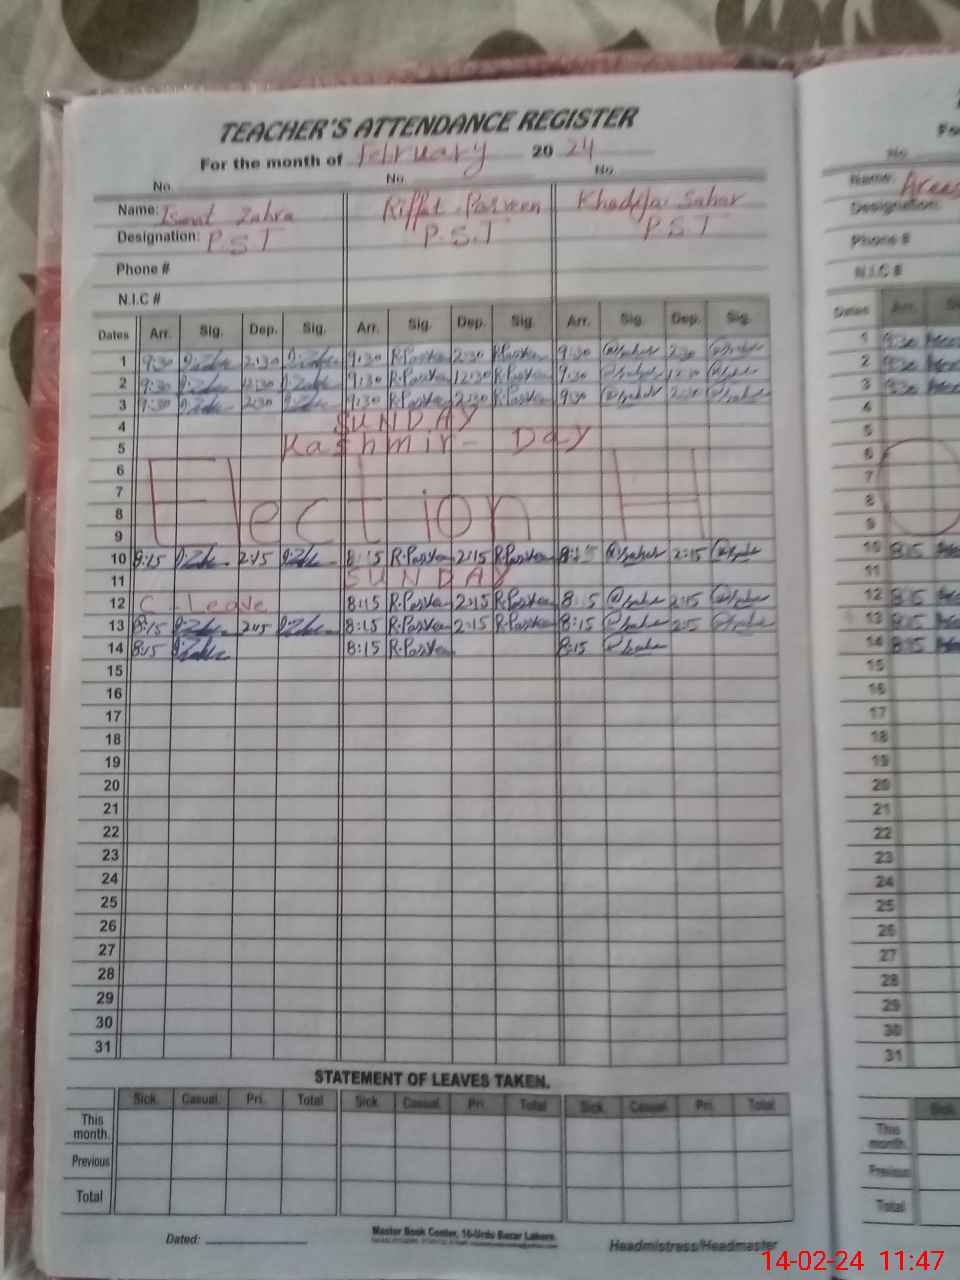 TEACHER'S ATTENDANCE REGISTER
For the month of February 2024
No. No. No.
Name: Ismat Zahra Riffat Parveen Khadija Sahar
Designation: P.S.T P.S.T P.S.T
Phone #
N.I.C #
Dates Arr. Sig. Dep. Sig. Arr. Sig. Dep. Sig. Arr. Sig. Dep. Sig.
1 9:30 2:30 9:30 R.Parveen 2:30 R.Parveen 9:30 2:30
2 9:30 12:30 9:30 R.Parveen 12:30 R.Parveen 9:30 12:30
3 9:30 2:30 9:30 R.Parveen 2:30 R.Parveen 9:30 2:30
4 SUNDAY
5 Kashmir - Day
6
7 Election H
8
9
10 8:15 2:15 8:15 R.Parveen 2:15 R.Parveen 8:15 2:15
11 SUNDAY
12 C - Leave 8:15 R.Parveen 2:15 R.Parveen 8:15 2:15
13 8:15 2:15 8:15 R.Parveen 2:15 R.Parveen 8:15 2:15
14 8:15 8:15 R.Parveen 8:15
15
16
17
18
19
20
21
22
23
24
25
26
27
28
29
30
31
STATEMENT OF LEAVES TAKEN.
Sick. Casual. Pri. Total Sick. Casual. Pri. Total Sick. Casual. Pri. Total
This month.
Previous
Total
Dated:
Master Book Center, 16-Urdu Bazar Lahore.
Headmistress/Headmaster
No
Name:
Designation:
Phone #
N.I.C #
Dates Arr.
1 9:30
2 9:30
3 9:30
4
5
6
7
8
9
10 8:15
11
12 8:15
13 8:15
14 8:15
15
16
17
18
19
20
21
22
23
24
25
26
27
28
29
30
31
Sick.
This month.
Previous
Total
14-02-24 11:47